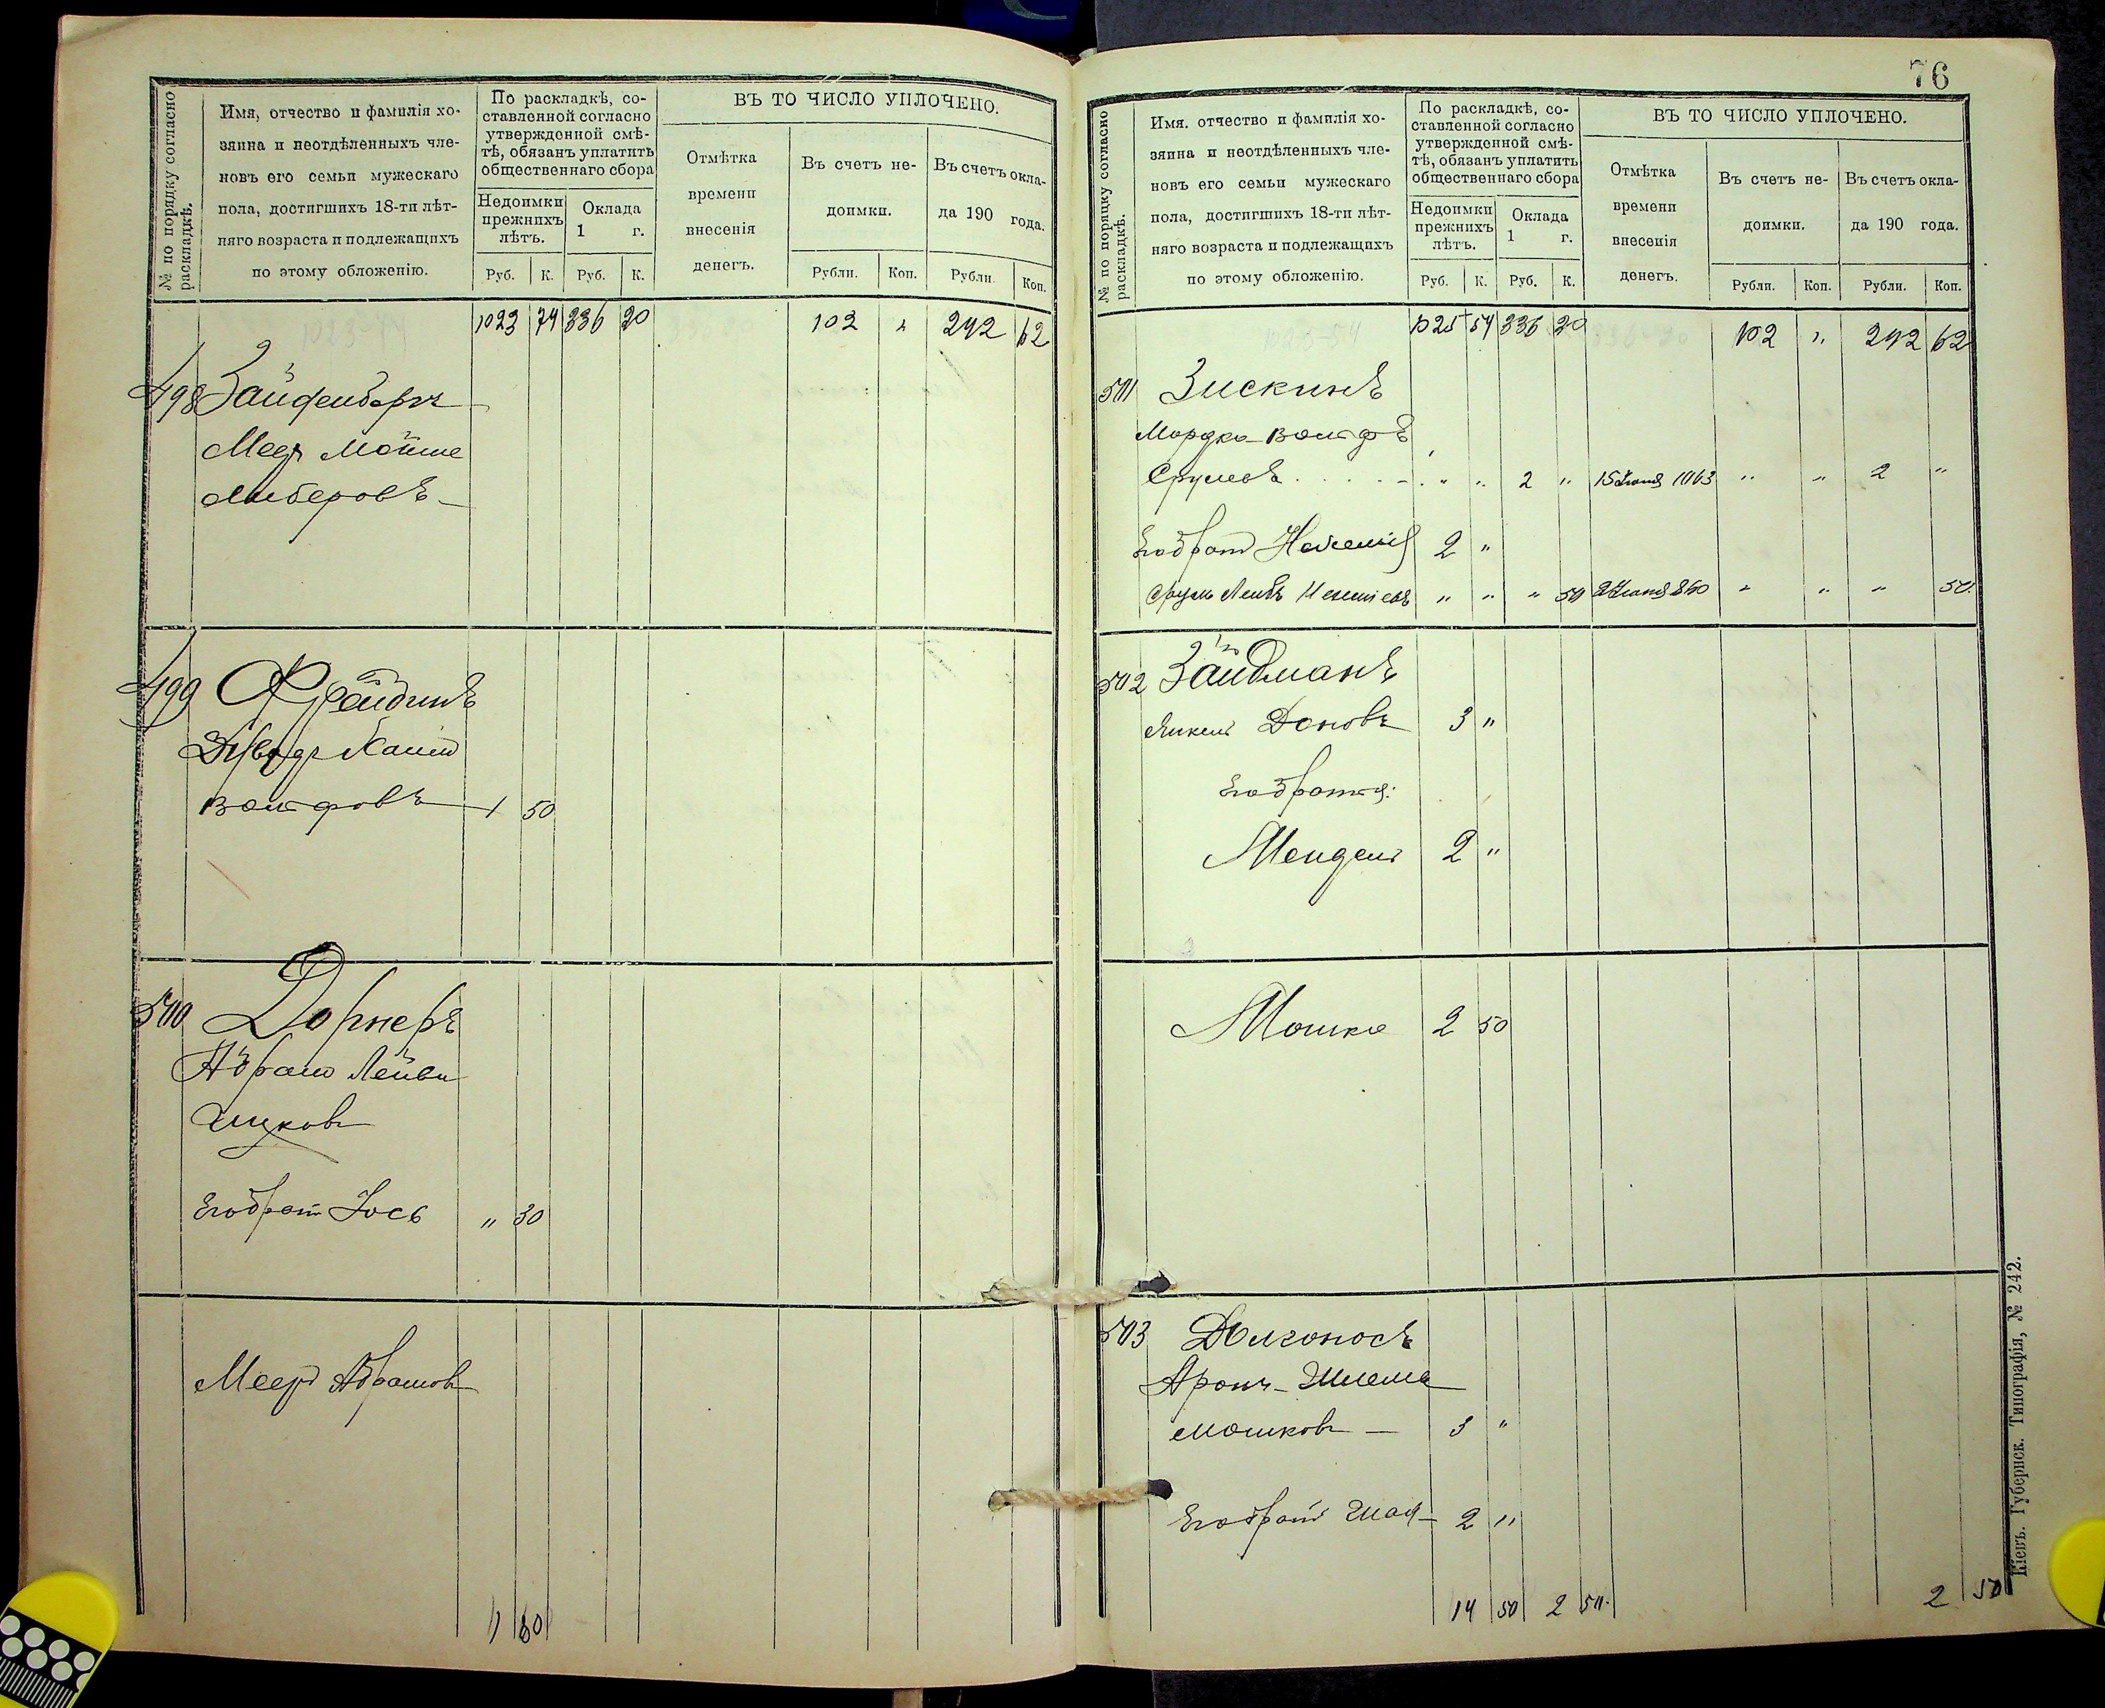 № по порядку согласно раскладкѣ.
Имя, отчество и фамилія хо-
зяина и неотдѣленныхъ чле-
новъ его семьи мужескаго
пола, достигшихъ 18-ти лѣт-
няго возраста и подлежащихъ
по этому обложенію.
По раскладкѣ, со-
ставленной согласно
утвержденной смѣ-
тѣ, обязанъ уплатить
общественнаго сбора
Недоимки
прежнихъ
лѣтъ.
Оклада
1 г.
Руб. К. Руб. К.
ВЪ ТО ЧИСЛО УПЛОЧЕНО.
Отмѣтка
времени
внесенія
денегъ.
Въ счетъ не-
доимки.
Рубли. Коп.
Въ счетъ окла-
да 190 года.
Рубли. Коп.
1023 74 336 20 102 " 242 62
498 Зайденберг
Меер Мойше
Лейберовъ
499 Фрейдинъ
Давид Хаим
Вольфовъ 1 50
500 Дорнеръ
Абрам Лейви
Ицков
Его брат Иось " 30
Меер Абрамов
1 80
76
№ по порядку согласно раскладкѣ.
Имя. отчество и фамилія хо-
зяина и неотдѣленныхъ чле-
новъ его семьи мужескаго
пола, достигшихъ 18-ти лѣт-
няго возраста и подлежащихъ
по этому обложенію.
По раскладкѣ, со-
ставленной согласно
утвержденной смѣ-
тѣ, обязанъ уплатить
общественнаго сбора
Недоимки
прежнихъ
лѣтъ.
Оклада
1 г.
Руб. К. Руб. К.
ВЪ ТО ЧИСЛО УПЛОЧЕНО.
Отмѣтка
времени
внесенія
денегъ.
Въ счетъ не-
доимки.
Рубли. Коп.
Въ счетъ окла-
да 190 года.
Рубли. Коп.
1025 54 336 20 102 " 242 62
501 Зискинъ
Мордко Вольфъ
Срулевъ " " 2 " 15 Июня 1063 " " 2 "
Его брат Нехемия 2 "
Сруль Лейбъ " " " 50 " " " 50
502 Зайдманъ
Янкель 3 "
Его братья:
Мендель 2 "
Мошко 2 50
503 Долгоносъ
Арон-Шлема
Мошков 3 "
Его брат Шая 2 "
14 50 2 50 2 50
Кіевъ. Губернск. Типографія, № 242.